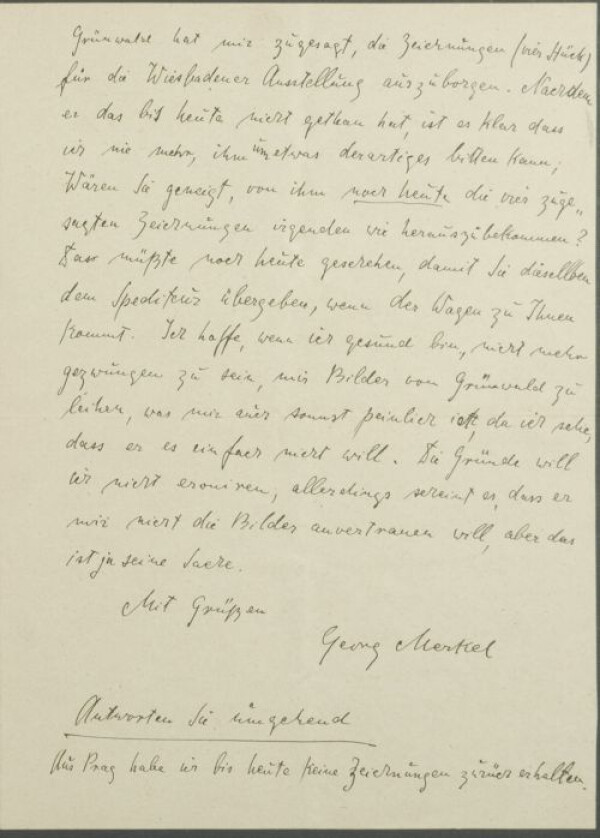 Grünwald hat mir zugesagt, die Zeichnungen (vier Stück)
für die Wiesbadener Ausstellung auszuborgen. Nachdem
er das bis heute nicht gethan hat, ist es klar dass
ich nie mehr, ihm um etwas derartiges bitten kann;
Wären Sie geneigt, von ihm noch heute die vier zuge„
sagten Zeichnungen irgenden wie herauszubekommen?
Dass müßte noch heute geschehen, damit Sie dieselben
dem Spediteur übergeben, wenn der Wagen zu Ihnen
kommt. Ich hoffe, wenn ich gesund bin, nicht mehr
gezwungen zu sein, mir Bilder von Grünwald zu
leihen, was mir auch sonst peinlich ist, da ich sehe,
dass er es einfach nicht will. Die Gründe will
ich nicht eroniren, allerdings scheint es, dass er
mir nicht die Bilder anvertrauen will, aber das
ist ja seine Sache.
Mit Grüßen
Georg Merkel
Antworten Sie umgehend
Aus Prag habe ich bis heute keine Zeichnungen zurück erhalten.